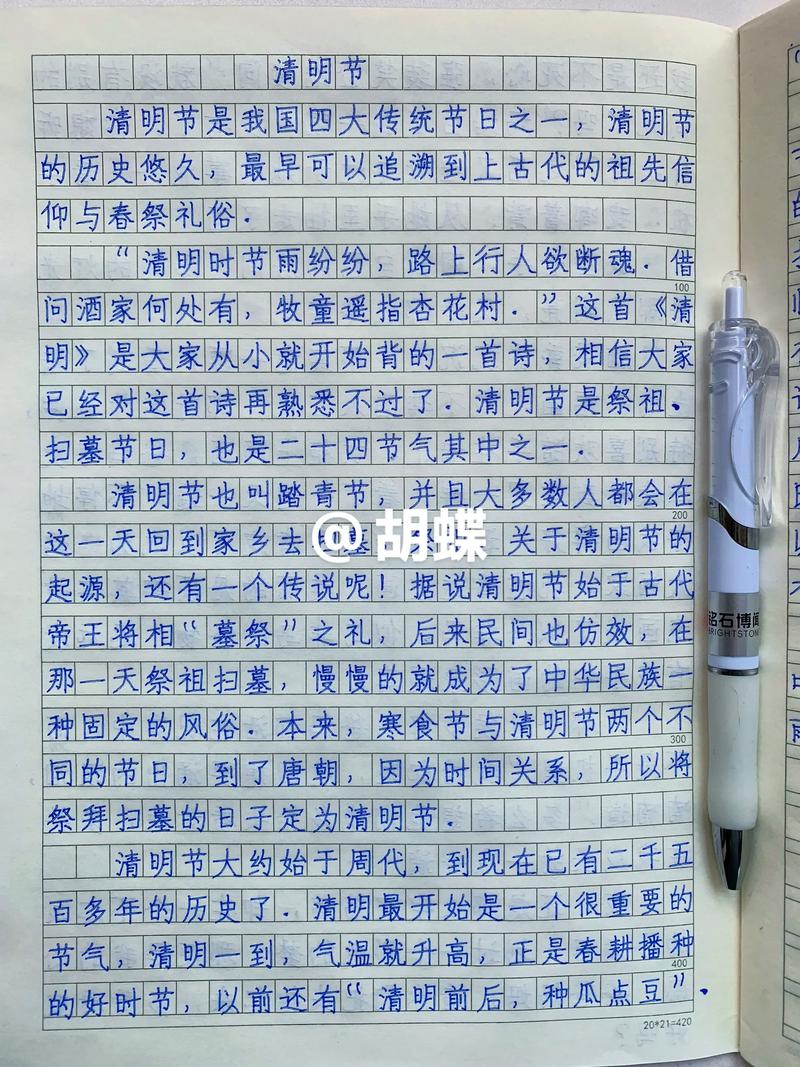 清明节
清明节是我国四大传统节日之一，清明节
的历史悠久，最早可以追溯到上古代的祖先信
仰与春祭礼俗.
“清明时节雨纷纷，路上行人欲断魂.借
100
问酒家何处有，牧童遥指杏花村.”这首《清
明》是大家从小就开始背的一首诗，相信大家
已经对这首诗再熟悉不过了.清明节是祭祖、
扫墓节日，也是二十四节气其中之一.
清明节也叫踏青节，并且大多数人都会在
200
这一天回到家乡去 关于清明节的
@胡蝶
起源，还有一个传说呢！据说清明节始于古代
帝王将相“墓祭”之礼，后来民间也仿效，在
那一天祭祖扫墓，慢慢的就成为了中华民族一
种固定的风俗.本来，寒食节与清明节两个不
300
同的节日，到了唐朝，因为时间关系，所以将
祭拜扫墓的日子定为清明节.
清明节大约始于周代，到现在已有二千五
百多年的历史了.清明最开始是一个很重要的
节气，清明一到，气温就升高，正是春耕播种
400
的好时节，以前还有“清明前后，种瓜点豆”.
20*21=420
铭石博闻
BRIGHTSTON